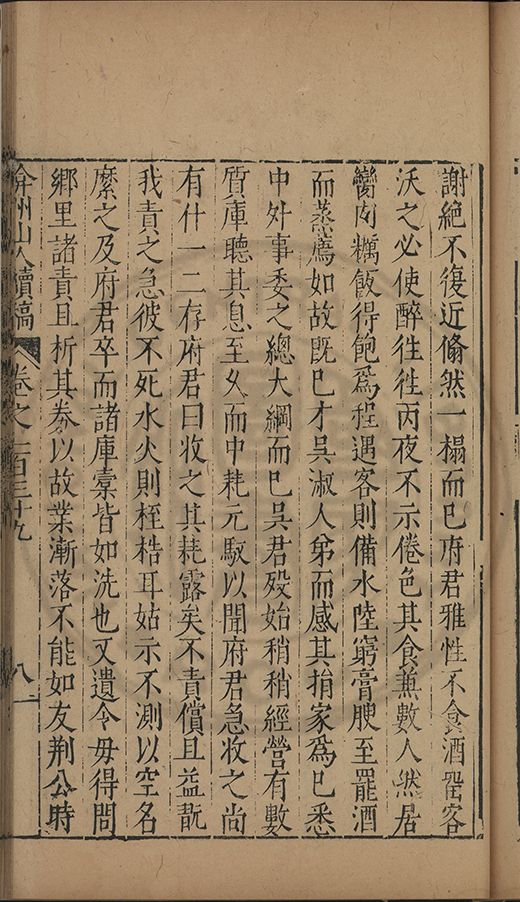 謝絕不復近翛然一榻而已府君雅性不食酒留客
沃之必使醉徃徃丙夜不示倦色其食兼數人然居
臠肉糲飯得飽爲程遇客則備水陸窮膏腴至罷酒
而蒸薦如故既已才吳淑人弟而感其捐家爲已悉
中外事委之緫大綱而已吳君殁始稍稍經營有數
質庫聽其息至乆而中耗元馭以聞府君急收之尚
有什一二存府君曰收之其耗露矣不責償且益翫
我責之急彼不死水火則桎梏耳姑示不測以空名
縻之及府君卒而諸庫橐皆如洗也又遺令毋得問
鄉里諸責且析其券以故業漸落不能如友荆公時
弇州山人續稿 卷之一百三十九 八